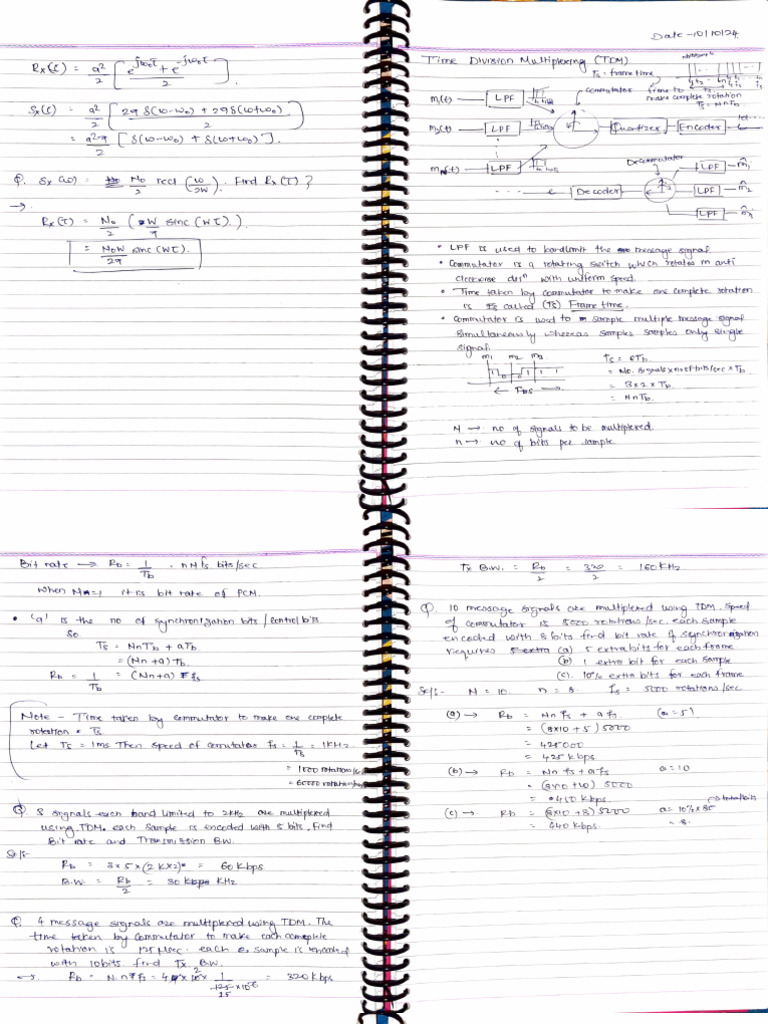 Rx(τ) = a²/2 [ (e^jω₀τ + e^-jω₀τ)/2 ].
Sx(τ) = a²/2 [ (2π δ(ω-ω₀) + 2π δ(ω+ω₀))/2 ]
= a²π/2 [ δ(ω-ω₀) + δ(ω+ω₀) ].
Q. Sx(ω) = N₀/2 rect (ω/2W). Find Rx(τ)?
→
Rx(τ) = N₀/2 ( W/π sinc (Wτ).)
= N₀W/2π sinc (Wτ).
Date - 10/10/24
Time Division Multiplexing (TDM)
Ts = frame time
commutator
make complete rotation
Ts = nTs
m₁(t) → LPF
m₂(t) → LPF → Quantizer → Encoder
mN(t) → LPF
Decommutator
Decoder
LPF → m̂₁
LPF → m̂₂
LPF
• LPF is used to bandlimit the message signal.
• Commutator is a rotating switch which rotates in anti
clockwise dirⁿ with uniform speed.
• Time taken by commutator to make one complete rotation
is called (Ts) Frame time.
• Commutator is used to sample multiple message signal
simultaneously whereas sampler samples only single
signal.
m₁ m₂ m₃
Ts = 6Tb
= No. signals × no of bits/sec × Tb
= 3×2×Tb
= NnTb.
N → no of signals to be multiplexed.
n → no of bits per sample
Bit rate → Rb = 1/Tb = nNfs bits/sec
when N=1 it is bit rate of PCM.
• 'a' is the no of synchronization bits / control bits
So
Ts = NnTb + aTb
= (Nn+a) Tb.
Rb = 1/Tb = (Nn+a) fs
Note - Time taken by commutator to make one complete
rotation = Ts
Let Ts = 1ms Then speed of commutator fs = 1/Ts = 1KHz
= 1000 rotation/s
= 60000 rotation
Q 3 signals each band limited to 2KHz are multiplexed
using TDM. each sample is encoded with 5 bits, find
Bit rate and Transmission BW.
Rb = 3×5×(2K×2) = 60 Kbps
B.W. = Rb/2 = 30 KHz
Q. 4 message signals are multiplexed using TDM. The
time taken by commutator to make each complete
rotation is 125 μsec. each sample is encoded
with 10 bits. find Tx B.W.
→ Rb = N.n fs = 4×10 × 1/(125×10⁻⁶) = 320 Kbps
Tx B.W. = Rb/2 = 320/2 = 160 KHz
Q. 10 message signals are multiplexed using TDM. Speed
of commutator is 5000 rotations/sec. each sample
encoded with 8 bits find bit rate if synchronization
requires extra (a) 5 extra bits for each frame
(b) 1 extra bit for each sample
(c). 10% extra bits for each frame
N = 10. n = 8. fs = 5000 rotations/sec
(a) → Rb = Nn fs + a fs. (a = 5)
= (8×10 + 5) 5000
= 425000
= 425 kbps
(b) → Rb = Nn fs + a fs a = 10
= (8×10 + 10) 5000
= 450 Kbps.
(c) → Rb = (8×10 + 8) 5000 a = 10% × 80 → total bits
= 440 Kbps. = 8.